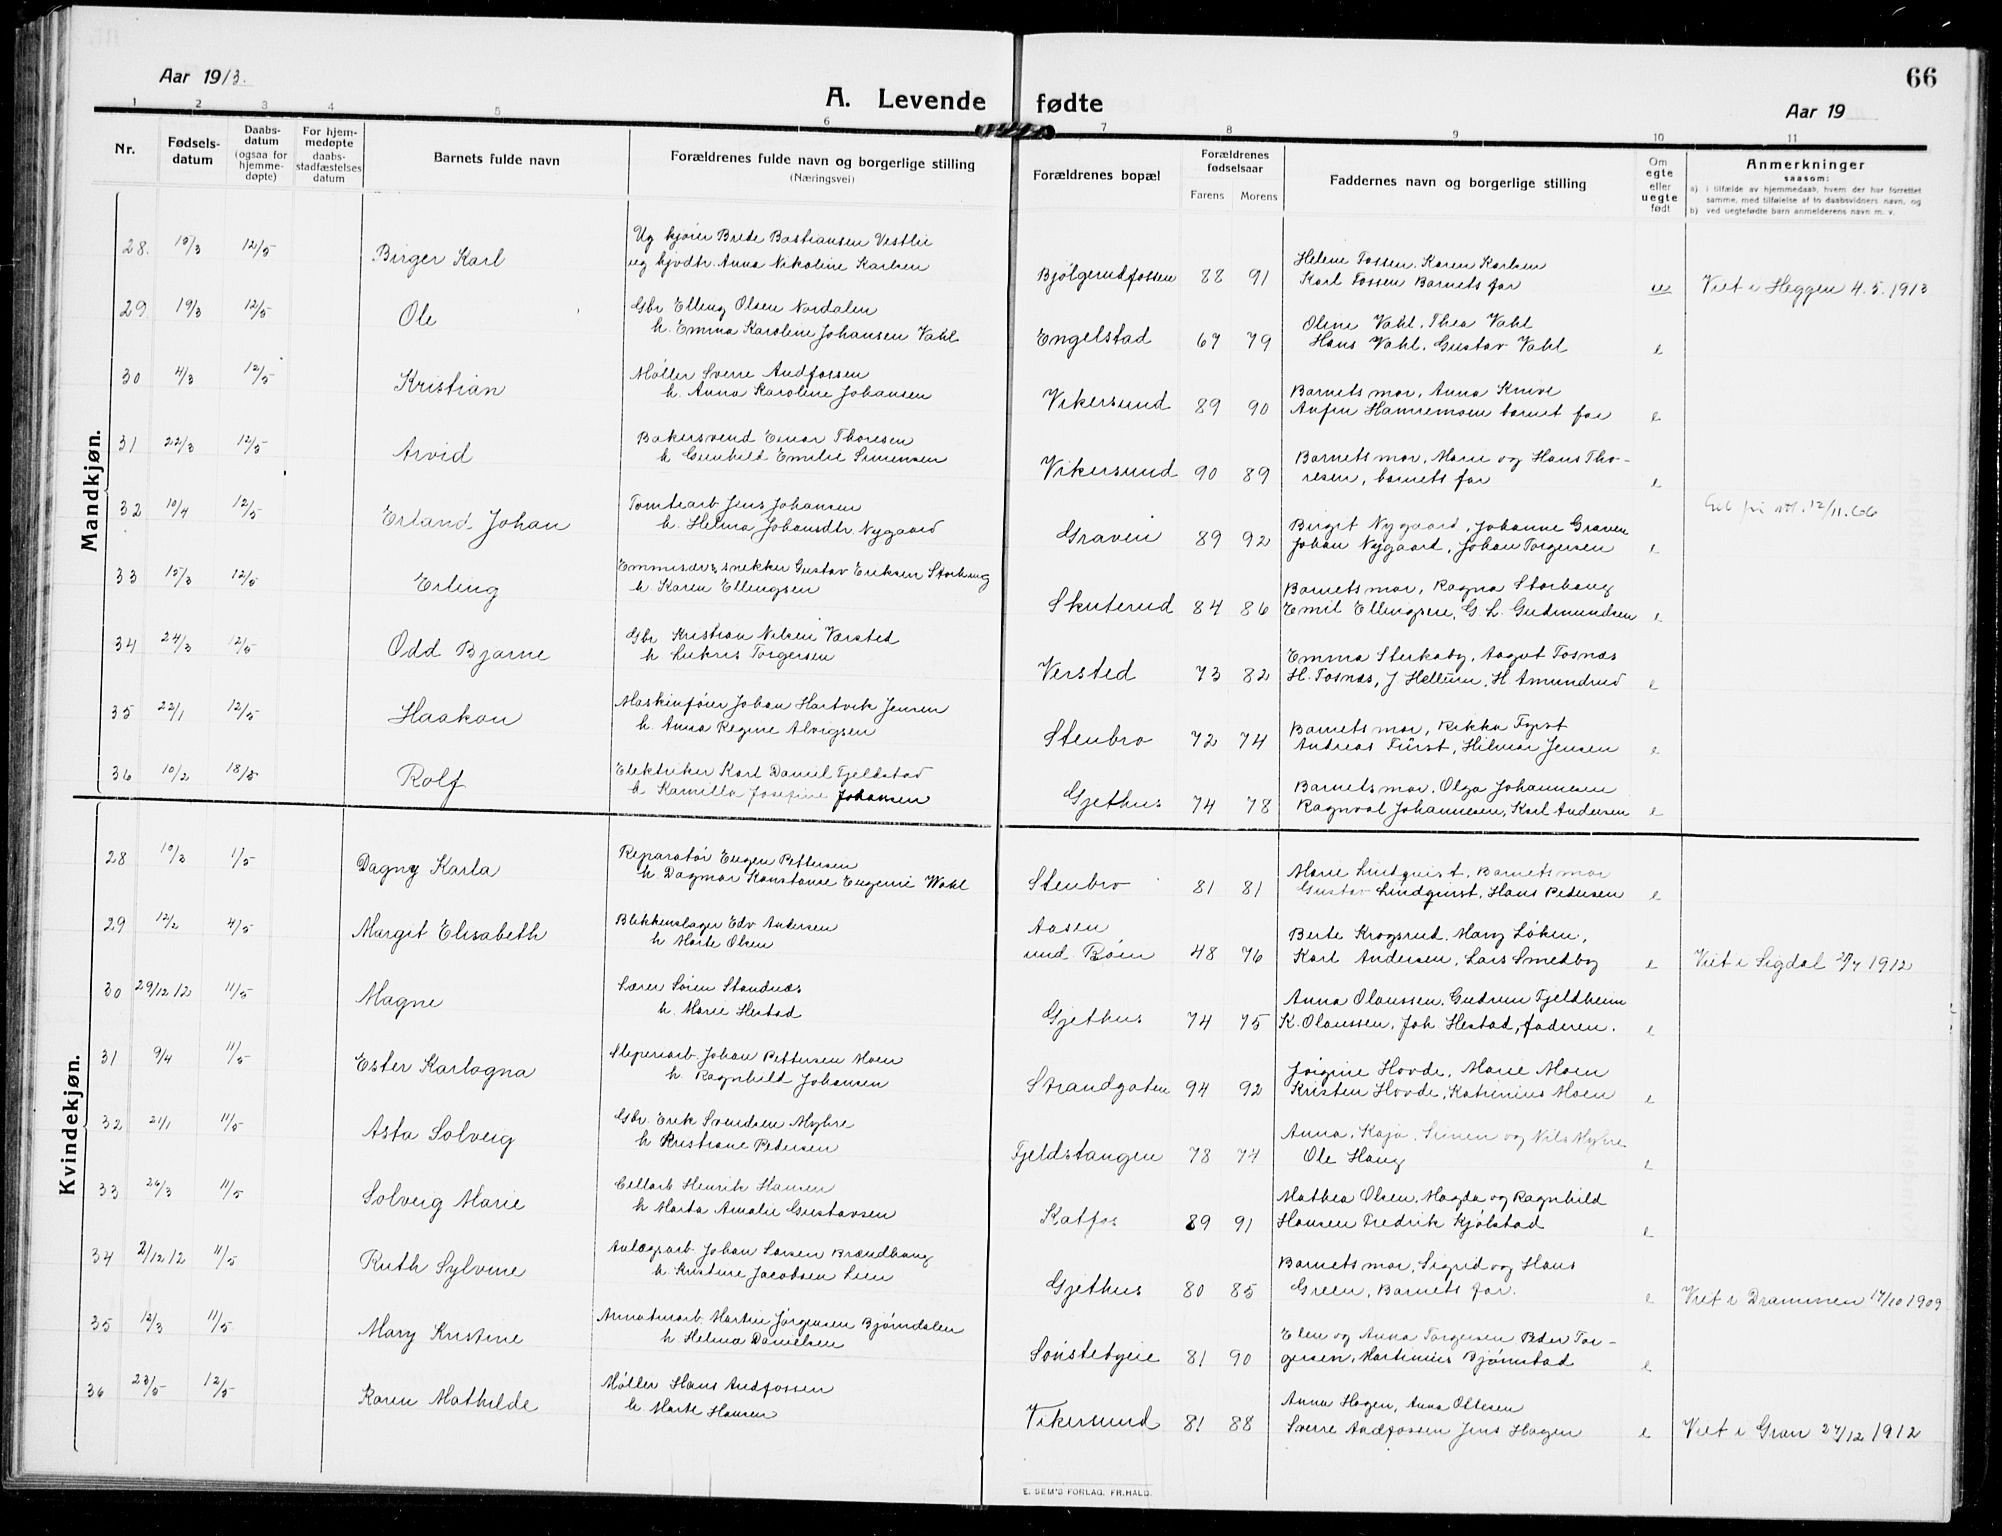 Aar 1913.
A. Levende fødte
Aar 19
66
1 2 3 4 5 6 7 8 9 10 11
Nr.
Fødsels-
datum
Daabs-
datum
(ogsaa for
hjemme-
døpte)
For hjem-
medøpte
daabs-
stadfæstelses
datum
Barnets fulde navn
Forældrenes fulde navn og borgerlige stilling
(Næringsvei)
Forældrenes bopæl
Forældrenes
fødselsaar
Farens Morens
Faddernes navn og borgerlige stilling
Om
egte
eller
uegte
født
Anmerkninger
saasom:
a) i tilfælde av hjemmedaab, hvem der har forrettet
samme, med tilføielse af to daabsvidners navn, og
b) ved uegtefødte barn anmelderens navn m. v.
Mandkjøn.
28. 15/3 12/5 Birger Karl
Ug kjører Brede Bastiansen Vestlie
ug hjvdtr. Anna Nikoline Karlsen
Bjølgerudfossen 88 91
Helene Fossen. Karen Karlsen
Karl Fossen Barnets far
ue Viet i Heggen 4.5.1913
29 19/3 12/5 Ole
Gbr Elling Olsen Nordalen
h. Emma Karoline Johansen Vahl
Engelstad 67 79
Oline Vahl, Thea Vahl
Hans Vahl, Gustav Vahl
e
30 4/3 12/5 Kristian
Møller Sverre Andfossen
h. Anna Karoline Johansen
Vikersund 89 90
Barnets mor, Anna Knive
Anfin Hamremoen barnets far
e
31 22/3 12/5 Arvid
Bakersvend Einar Thoresen
h Gunhild Emilie Simensen
Vikersund 90 89
Barnets mor, Marie og Hans Tho-
resen, barnets far
e
32 10/4 12/5 Erland Johan
Tomtearb Jens Johansen
h. Helma Johansdtr Nygaard
Graven 89 92
Birgit Nygaard, Johanne Graven
Johan Nygaard, Johan Torgersen
e 12/11.66
33 15/3 12/5 Erling
snekker Gustav Eriksen Storhaug
h. Karen Ellingsen
Skuterud 84 86
Barnets mor, Ragna Storhaug
Emil Ellingsen, G. L. Gudmundsen
e
34 24/3 12/5 Odd Bjarne
Gbr Kristian Nilsen Værsted
h Lukris Torgersen
Versted 73 82
Emma Sterkaby, Aagot Fosnæs
H. Fosnæs, J Hellum, H Amundrud
e
35 22/1 12/5 Haakon
Maskinfører Johan Hartvik Jensen
h. Anna Regine Alvigsen
Stenbro 72 74
Barnets mor, Rikka Fyrst
Andreas Fürst, Hilmar Jensen
e
36 10/2 18/5 Rolf
Elektriker Karl Daniel Fjeldstad
h Kamilla Josefine Johansen
Gjethus 74 78
Barnets mor, Olga Johannesen
Ragnval Johannesen, Karl Andersen
e
Kvindekjøn.
28 10/3 1/5 Dagny Karla
Reparatør Eugen Pettersen
h. Dagmar Konstanse Eugenie Wahl
Stenbro 81 81
Marie Lindqvist, Barnets mor
Gustav Lindqvist, Hans Pedersen
e
29 12/2 4/5 Margit Elisabeth
Blikkenslager Edv Andersen
h Marte Olsen
Aasen
und. Bøen 48 76
Berte Krogsrud, Mary Løken,
Karl Andersen, Lars Smedby
e Viet i Sigdal 27/7 1912
30 29/12 12 11/5 Magne
Lærer Søren Strandnæs
h. Marie Hestad
Gjethus 74 75
Anna Olaussen, Gudrun Fjeldheim
K. Olaussen, Joh Hestad, faderen.
e
31 9/4 11/5 Ester Karlagna
Sliperiarb. Johan Pettersen Moen
h. Ragnhild Johansen
Strandgaten 94 92
Jørgine Hovde, Marie Moen
Kristen Hovde, Katrinius Moen
e
32 21/1 11/5 Asta Solveig
Gbr. Erik Svendsen Myhre
h Kristiane Pedersen
Fjeldstangen 78 74
Anna, Kaja, Simen og Nils Myhre
Ole Haug
e
33 26/3 11/5 Solveig Marie
Cellarb Henrik Hansen
h Marta Amalie Gustavsen
Katfos 89 91
Mathea Olsen, Magda og Ragnhild
Hansen Fredrik Kjølstad
e
34 2/12 12 11/5 Ruth Sylvine
Anlægsarb Johan Larsen Brændhaug
h. Kristine Jacobsen Lien
Gjethus 80 85
Barnets mor, Sigrid og Hans
Green, Barnets far.
e Viet i Drammen 17/10 1909
35 12/3 11/5 Mary Kristine
Martin Jørgensen Bjørndalen
h Helma Danielsen
Sønstebyeie 81 90
Elen og Anna Torgersen Peder Tor-
gersen, Martinius Bjørnstad
e
36 23/5 12/5 Karen Mathilde
Møller Hans Andfossen
h Marte Hansen
Vikersund 81 88
Anna Hagen, Anna Ottesen
Sverre Andfossen Jens Hagen
e Viet i Gran 27/12 1912
E. SEM'S FORLAG, FR.HALD.